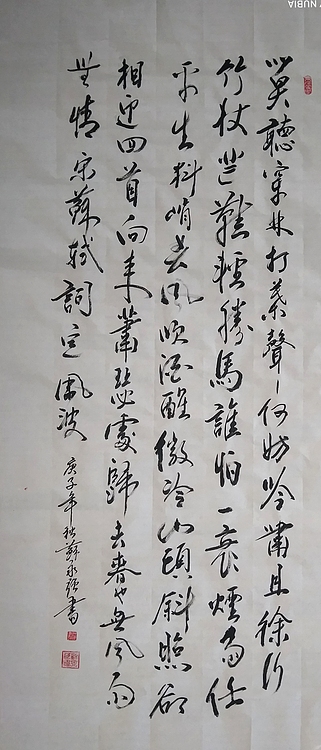 莫聽穿林打葉聲何妨吟嘯且徐行
竹杖芒鞋輕勝馬誰怕一蓑煙雨任
平生料峭春風吹酒醒微冷山頭斜照卻
相迎回首向来蕭瑟處歸去春也無風雨
無情宋蘇軾詞定風波
庚子年秋永强書
NUBIA